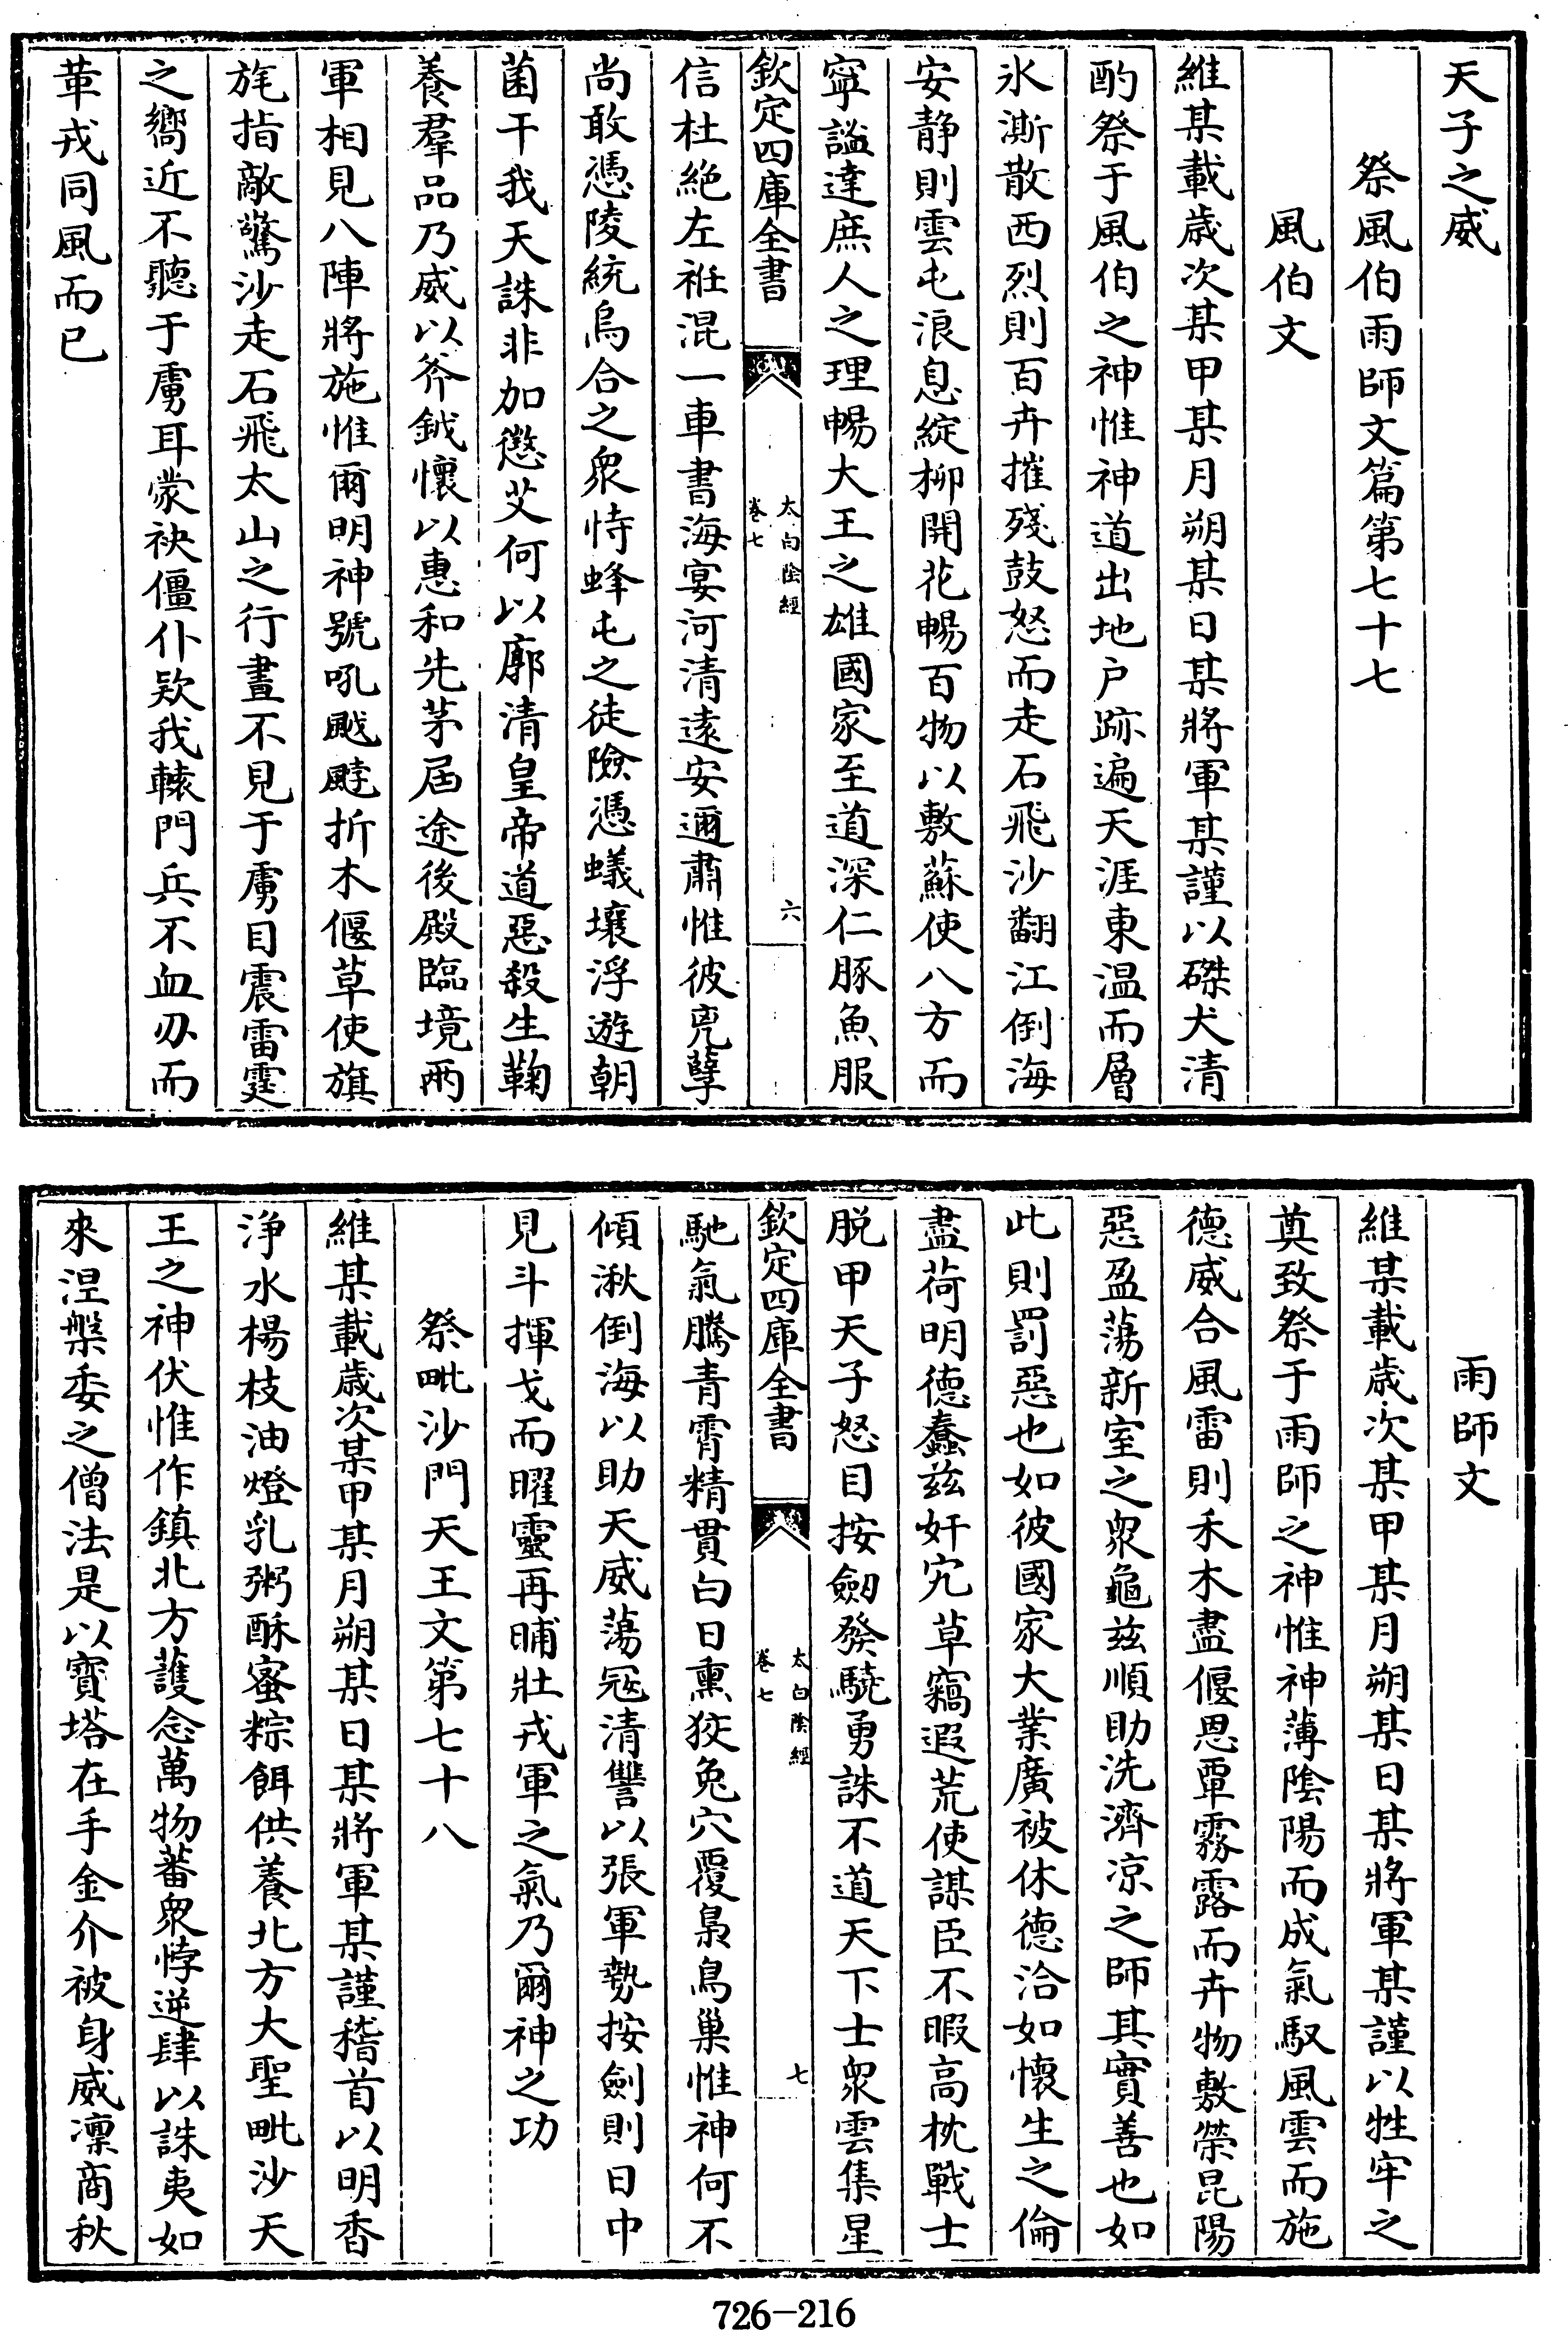 天子之威
祭風伯雨師文篇第七十七
風伯文
維某載歳次某甲某月朔某日某將軍某謹以磔犬清
酌祭于風伯之神惟神道出地户跡遍天涯東温而層
氷澌散西烈則百卉摧殘鼓怒而走石飛沙翻江倒海
安静則雲屯浪息綻柳開花暢百物以敷蘇使八方而
寜謐達庶人之理暢大王之雄國家至道深仁豚魚服
欽定四庫全書
太白陰經
卷七
六
信杜絶左袵混一車書海宴河清遠安邇肅惟彼兇孽
尚敢憑陵統烏合之衆恃蜂屯之徒險憑蟻壤浮遊朝
菌干我天誅非加懲艾何以廓清皇帝道惡殺生鞠
養羣品乃威以斧鉞懷以惠和先茅届途後殿臨境兩
軍相見八陣將施惟爾明神號吼颰颷折木偃草使旗
旄指敵驚沙走石飛太山之行晝不見于虜目震雷霆
之嚮近不聽于虜耳蒙袂僵仆欵我轅門兵不血刃而
革戎同風而已
雨師文
維某載歳次某甲某月朔某日某將軍某謹以牲牢之
奠致祭于雨師之神惟神薄陰陽而成氣馭風雲而施
德威合風雷則禾木盡偃恩覃霧露而卉物敷榮昆陽
惡盈蕩新室之衆龜兹順助洗濟凉之師其實善也如
此則罰惡也如彼國家大業廣被休德洽如懷生之倫
盡荷明德蠢兹奸宄草竊遐荒使謀臣不暇高枕戰士
脱甲天子怒目按劒發驍勇誅不道天下士衆雲集星
欽定四庫全書
太白陰經
卷七
七
馳氣騰青霄精貫白日熏狡兔穴覆梟鳥巢惟神何不
傾湫倒海以助天威蕩冦清讐以張軍勢按劍則日中
見斗揮戈而曜靈再晡壯戎軍之氣乃爾神之功
祭毗沙門天王文第七十八
維某載歳次某甲某月朔某日某將軍某謹稽首以明香
浄水楊枝油燈乳粥酥蜜粽餌供養北方大聖毗沙天
王之神伏惟作鎮北方護念萬物蕃衆悖逆肆以誅夷如
來湼槃委之僧法是以寳塔在手金介被身威凛商秋
726-216